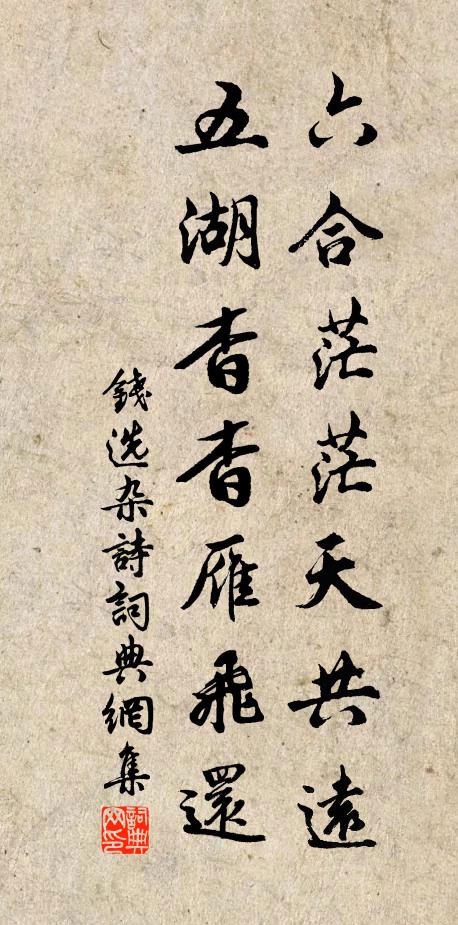 六合茫茫天共遠
五湖杳杳雁飛還
錢选杂詩詞典網集
詞典网印